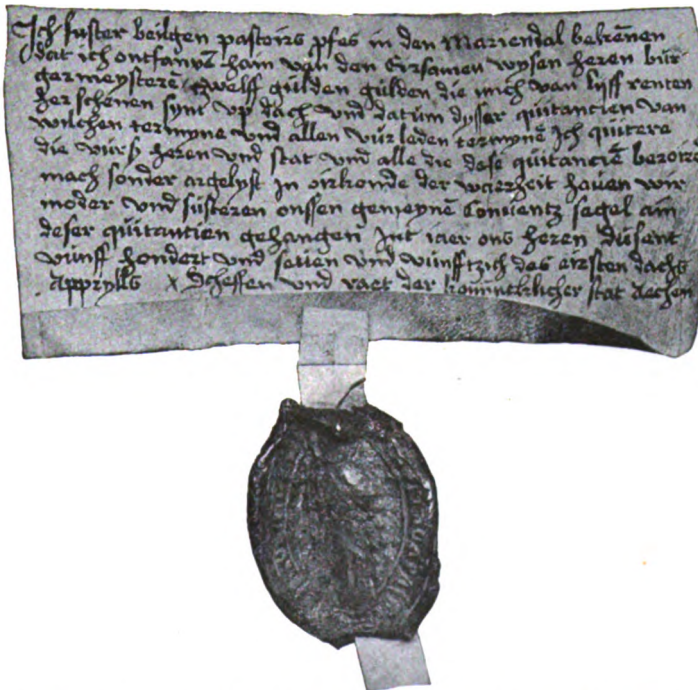 Ich suster beilgen pastoirs pfes in den Mariendal bekennen
dat ich ontfangen han van den Eirsamen wysen heren bur
germeysteren zwelff gulden gulden die mich van lyff renten
herschenen synt vp dach vnd datum dysser quitancien van
wilchen termyne vnd allen vurleden termyne Ich quitere
die vurs heren vnd stat vnd alle die dese quitancie
mach sonder argelyst In oirkonde der waerheit hauen wir
moder vnd susteren onssen gemeyne Conuentz segel an
deser quitantien gehangen Int iaer ons heren dusent
vunff hondert vnd seuen vnd vunfftzich des eirsten dachs
Apprylls x Scheffen vnd raet der stat Aechen